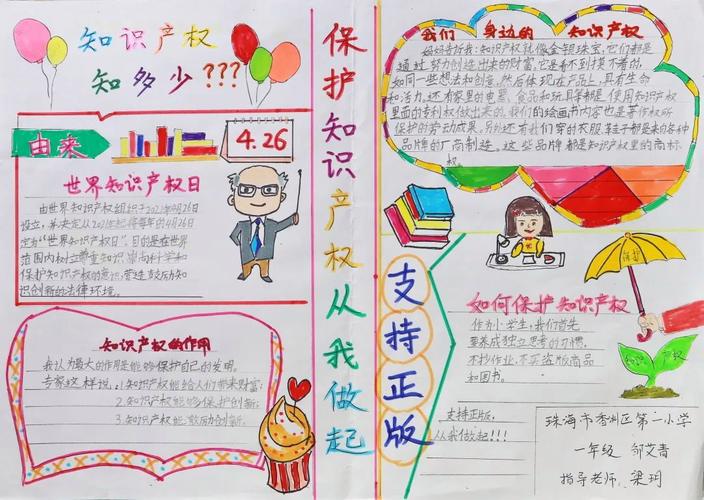 知识产权
知多少???
由来
4.26
世界知识产权日
由世界知识产权组织于2021年4月26日
设立,并决定从2021年起将每年的4月26日
定为“世界知识产权日”。目的是在世
界范围内树立尊重知识,崇尚科学和
保护知识产权的意识,营造鼓励知
识创新的法律环境。
知识产权的作用
我认为最大的作用是能够保护自己的发明。
专家这样说:1.知识产权能给人们带来财富;
2.知识产权能够保护创新;
3.知识产权能激励创新。
保护知识产权从我做起
我们身边的知识产权
妈妈告诉我:知识产权就像金银珠宝,它们都是
通过努力创造出来的财富,它是看不到摸不着的,
如同一些想法和创意,然后体现在产品上,具有生命
和活力。还有家里的电器、食品和玩具等都是使用知识产权
里面的专利权做出来的。我们的绘画内容也是著作权所
保护的劳动成果。另外还有我们穿的衣服、鞋子都是来自各种
品牌的厂商制造。这些品牌都是知识产权里的商标
权。
支持正版
如何保护知识产权
作为小学生,我们首先
要养成独立思考的习惯,
不抄作业,不买盗版商品
和图书。
支持正版,
从我做起!!!
保护
知识
产权
珠海市香洲区第一小学
一年级 邹艾青
指导老师 梁玥